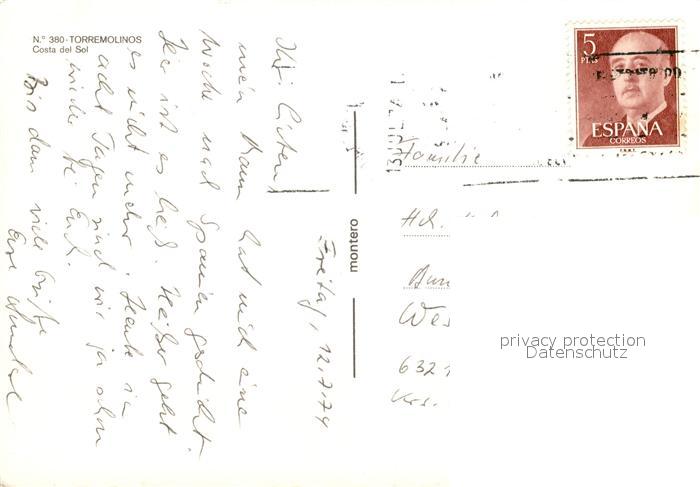 N.° 380-TORREMOLINOS
Costa del Sol
Freitag, 12.7.74
Ihr Lieben!
mein Mann hat mich eine
Woche nach Spanien geschickt.
Hier ist es heiß. Heißer geht
es nicht mehr. Heute in
acht Tagen sind wir ja schon
wieder bei Euch.
Bis dann viele Grüße
Eure
montero
5
PTS
ESPAÑA
CORREOS
Familie
632
Krs.
privacy protection
Datenschutz